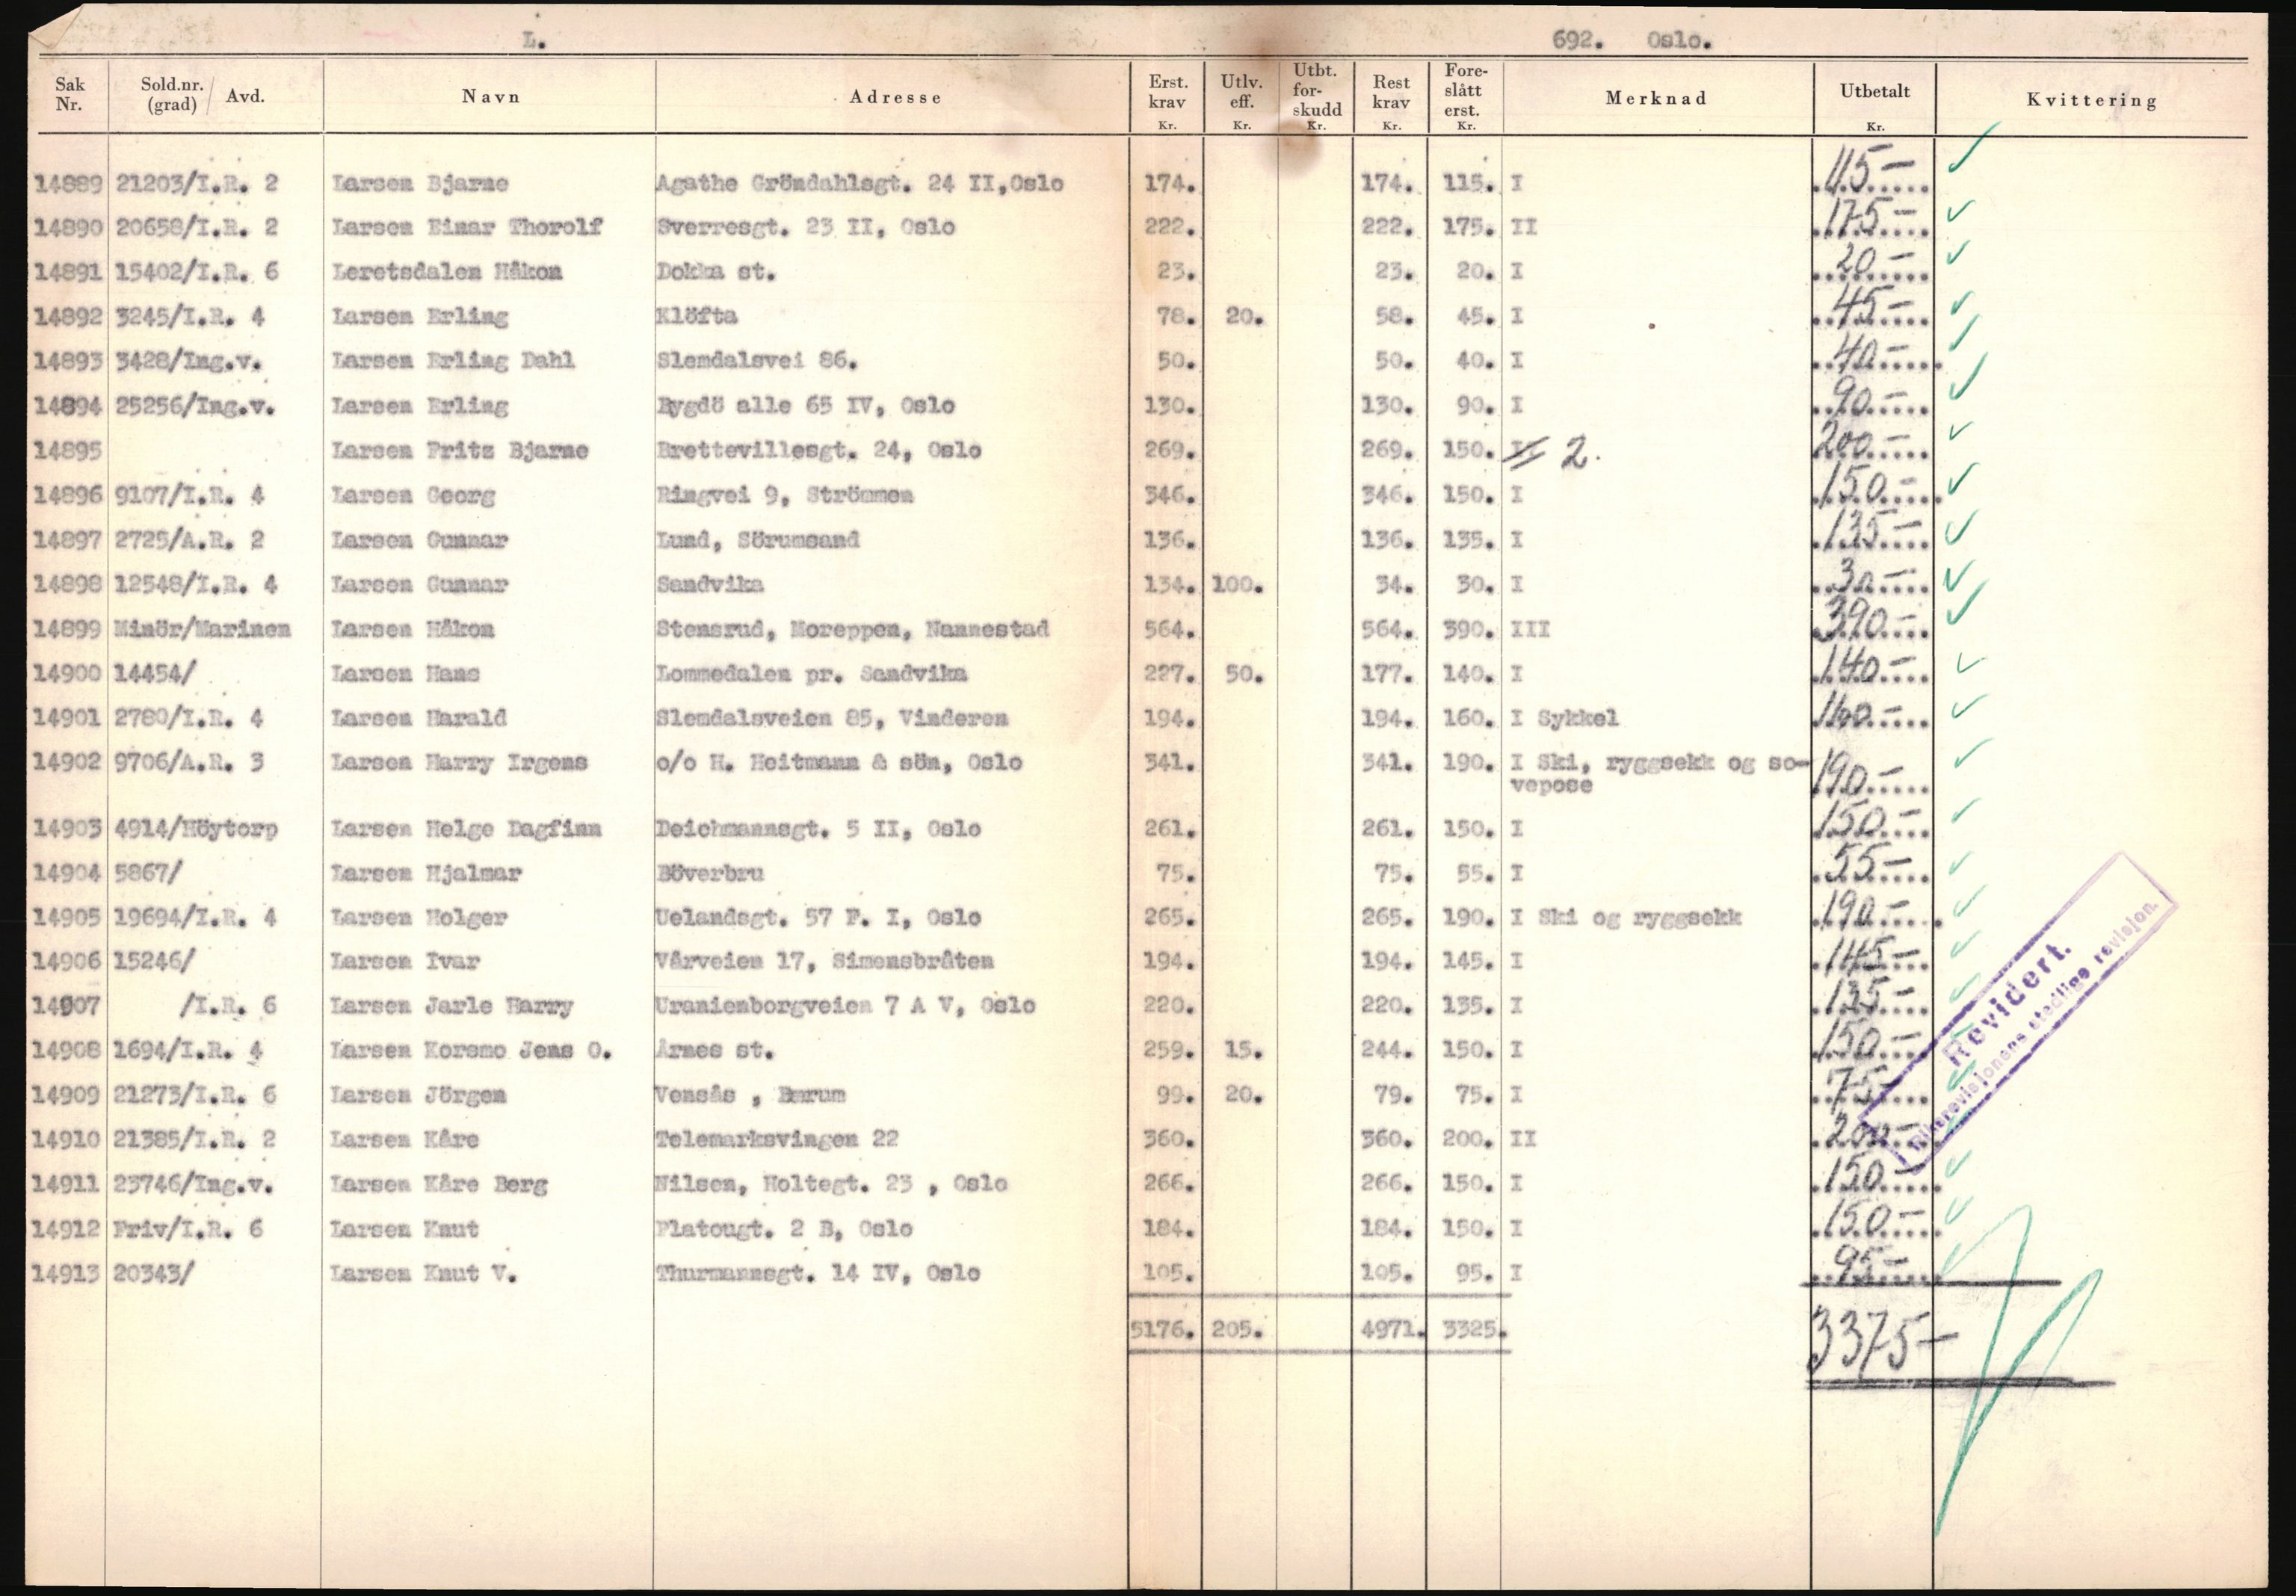 L. 692. Oslo.
Sak Nr. Sold.nr. (grad) / Avd. Navn Adresse Erst. krav Kr. Utlv. eff. Kr. Utbt. for- skudd Kr. Rest krav Kr. Fore- slått erst. Kr. Merknad Utbetalt Kr. Kvittering
14889 21203/I.R. 2 Larsen Bjarne Agathe Gröndahlsgt. 24 II,Oslo 174. 174. 115. I 115-
14890 20658/I.R. 2 Larsen Einar Thorolf Sverresgt. 23 II, Oslo 222. 222. 175. II 175-
14891 15402/I.R. 6 Leretsdalen Håkon Dokka st. 23. 23. 20. I 20-
14892 3245/I.R. 4 Larsen Erling Klöfta 78. 20. 58. 45. I 45-
14893 3428/Ing.v. Larsen Erling Dahl Slemdalsvei 86. 50. 50. 40. I 40-
14894 25256/Ing.v. Larsen Erling Bygdö alle 65 IV, Oslo 130. 130. 90. I 90-
14895 Larsen Fritz Bjarne Brettevillesgt. 24, Oslo 269. 269. 150. 2. 200-
14896 9107/I.R. 4 Larsen Georg Ringvei 9, Strömmen 346. 346. 150. I 150-
14897 2725/A.R. 2 Larsen Gunnar Lund, Sörumsand 136. 136. 135. I 135-
14898 12548/I.R. 4 Larsen Gunnar Sandvika 134. 100. 34. 30. I 30-
14899 Minör/Marinen Larsen Håkon Stensrud, Moreppen, Nannestad 564. 564. 390. III 390-
14900 14454/ Larsen Hans Lommedalen pr. Sandvika 227. 50. 177. 140. I 140-
14901 2780/I.R. 4 Larsen Harald Slemdalsveien 85, Vinderen 194. 194. 160. I Sykkel 160-
14902 9706/A.R. 3 Larsen Harry Irgens o/o H. Heitmann & sön, Oslo 341. 341. 190. I Ski, ryggsekk og so-
vepose 190-
14903 4914/Höytorp Larsen Helge Dagfinn Deichmannsgt. 5 II, Oslo 261. 261. 150. I 150-
14904 5867/ Larsen Hjalmar Böverbru 75. 75. 55. I 55-
14905 19694/I.R. 4 Larsen Holger Uelandsgt. 57 F. I, Oslo 265. 265. 190. I Ski og ryggsekk 190-
14906 15246/ Larsen Ivar Vårveien 17, Simensbråten 194. 194. 145. I 145-
14907 /I.R. 6 Larsen Jarle Harry Uranienborgveien 7 A V, Oslo 220. 220. 135. I 135-
14908 1694/I.R. 4 Larsen Koremo Jens O. Årnes st. 259. 15. 244. 150. I 150-
14909 21273/I.R. 6 Larsen Jörgen Vensås , Bærum 99. 20. 79. 75. I 75-
14910 21385/I.R. 2 Larsen Kåre Telemarksvingen 22 360. 360. 200. II 200-
14911 23746/Ing.v. Larsen Kåre Berg Nilsen, Holtegt. 23 , Oslo 266. 266. 150. I 150-
14912 Friv/I.R. 6 Larsen Knut Platougt. 2 B, Oslo 184. 184. 150. I 150-
14913 20343/ Larsen Knut V. Thurmannsgt. 14 IV, Oslo 105. 105. 95. I 95-
5176. 205. 4971. 3325. 3375-
Revidert.
Riksrevisjonens stedlige revisjon.